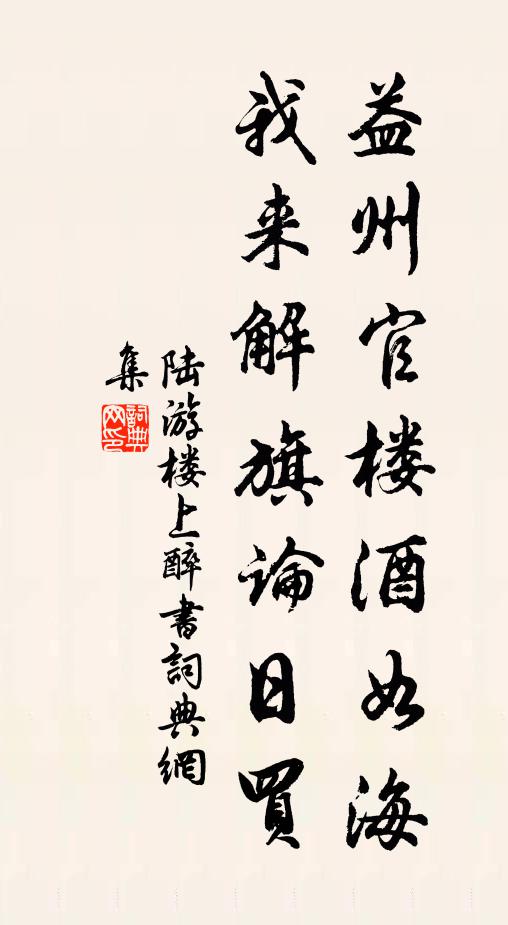 益州官楼酒如海
我来解旗论日買
陆游楼上醉书詞典網
集
詞典
网印